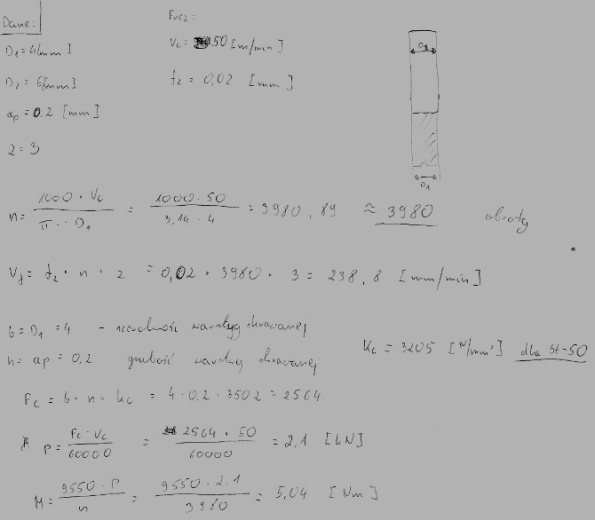 Dane:
Frez:
D1=4[mm]
Vc = 50 [m/min]
D2 = 6[mm]
fz = 0,02 [mm]
ap = 0.2 [mm]
z = 3
D2
D1
n = 1000 · Vc / π · D1 = 1000 · 50 / 3,14 · 4 = 3980,89 ≈ 3980 obroty
Vf = fz · n · z = 0,02 · 3980 · 3 = 238,8 [mm/min]
b = D1 = 4 - szerokość warstwy skrawanej
h = ap = 0,2 grubość warstwy skrawanej
kc = 3205 [N/mm²] dla St-50
Fc = b · h · kc = 4 · 0,2 · 3502 = 2564
P = Fc · Vc / 60000 = 2564 · 50 / 60000 = 2,1 [kN]
M = 9550 · P / n = 9550 · 2.1 / 3980 = 5,04 [Nm]